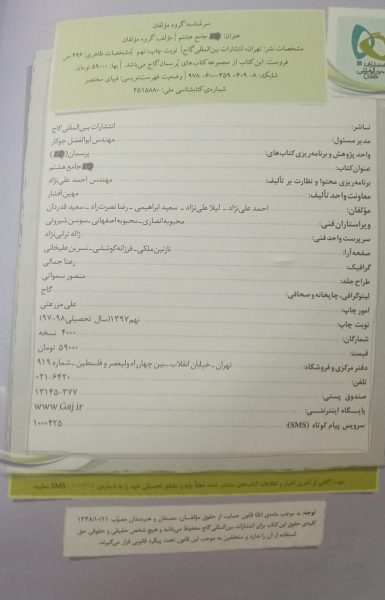 سرشناسه: گروه مؤلفان
عنوان: جامع هشتم | مؤلف: گروه مؤلفان
مشخصات نشر: تهران، انتشارات بین‌المللی گاج | نوبت چاپ: نهم | مشخصات ظاهری: ۳۹۶ ص
فروست: این کتاب از مجموعه کتاب‌های پُرسمان گاج می‌باشد. | بها: ۵۹۰۰۰ تومان
شابک: ۸-۴۰۹-۳۵۹-۶۰۰-۹۷۸ | وضعیت فهرست‌نویسی: فیپای مختصر
شماره‌ی کتابشناسی ملی: ۴۵۱۵۸۸۰
ناشر: انتشارات بین‌المللی گاج
مدیر مسئول: مهندس ابوالفضل جوکار
واحد پژوهش و برنامه‌ریزی کتاب‌های: پرسمان
عنوان کتاب: جامع هشتم
برنامه‌ریزی محتوا و نظارت بر تألیف: مهندس احمد علی‌نژاد
معاونت واحد تألیف: مهین افشار
مؤلفان: احمد علی‌نژاد - لیلا علی‌نژاد - سعید ابراهیمی - رضا نصرت‌زاد - سعید قدردان
ویراستاران فنی: محبوبه انصاری - محبوبه اصفهانی - سوسن شیروئی
سرپرست واحد فنی: ژاله ترابی‌نژاد
صفحه‌آرا: نازنین ملکی - فرزانه کوششی - نسرین علیخانی
گرافیک: رعنا جمالی
طراح جلد: منصور سماواتی
لیتوگرافی، چاپخانه و صحافی: گاج
امور چاپ: علی مزرعتی
نوبت چاپ: نهم ۱۳۹۷ (سال تحصیلی ۹۸-۹۷)
شمارگان: ۴۰۰۰ نسخه
قیمت: ۵۹۰۰۰ تومان
دفتر مرکزی و فروشگاه: تهران - خیابان انقلاب - بین چهارراه ولیعصر و فلسطین - شماره ۹۱۹
تلفن: ۰۲۱-۶۴۲۰
صندوق پستی: ۱۳۱۴۵-۳۷۷
پایگاه اینترنتی: www.Gaj.ir
سرویس پیام کوتاه (SMS): ۱۰۰۰۴۲۵
جهت آگاهی از آخرین اخبار و اطلاعات کتاب‌های منتشر شده، لطفاً پایه و مقطع تحصیلی خود را به شماره‌ی SMS نمایید
توجه: به موجب ماده‌ی (۵) قانون حمایت از حقوق مؤلفان، مصنفان و هنرمندان مصوّب ۱۳۴۸/۱۰/۱۱
کلیه‌ی حقوق این کتاب برای انتشارات بین‌المللی گاج محفوظ می‌باشد و هیچ شخص حقیقی و حقوقی حق
استفاده از آن را ندارد و متخلفین به موجب این قانون تحت پیگرد قانونی قرار می‌گیرند.